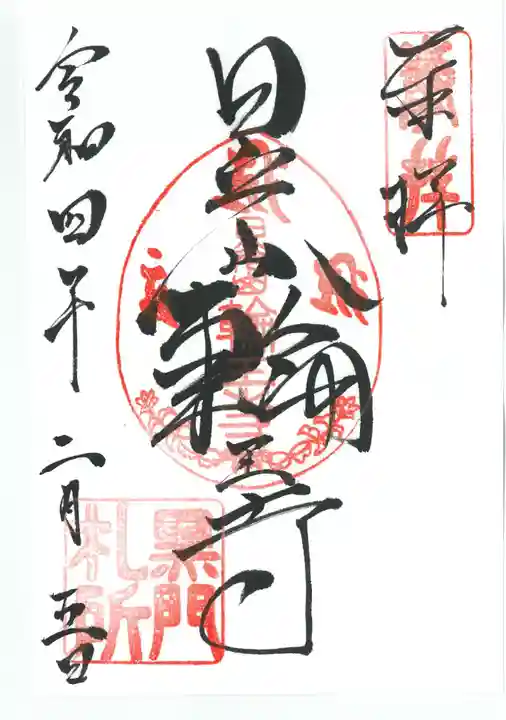 奉拝
日光山輪王寺
令和四年二月五日
黒門
札所